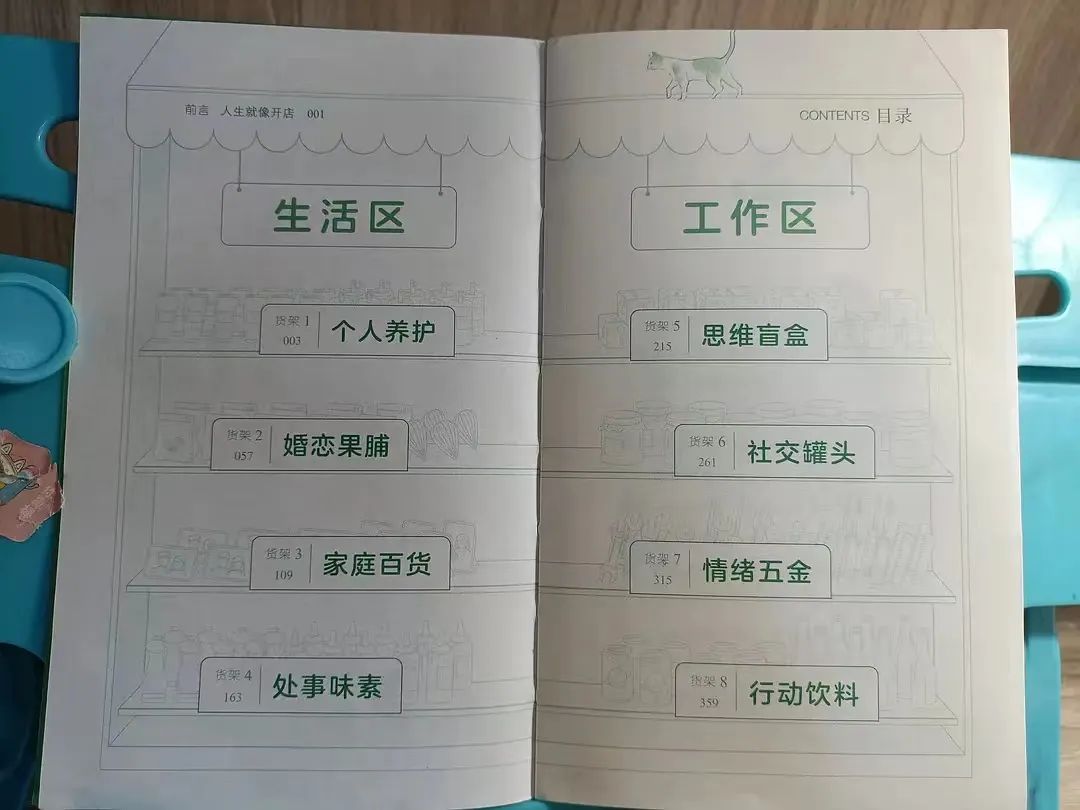 前言 人生就像开店 001
生活区
货架 1
003
个人养护
货架 2
057
婚恋果脯
货架 3
109
家庭百货
货架 4
163
处事味素
CONTENTS 目录
工作区
货架 5
215
思维盲盒
货架 6
261
社交罐头
货架 7
315
情绪五金
货架 8
359
行动饮料